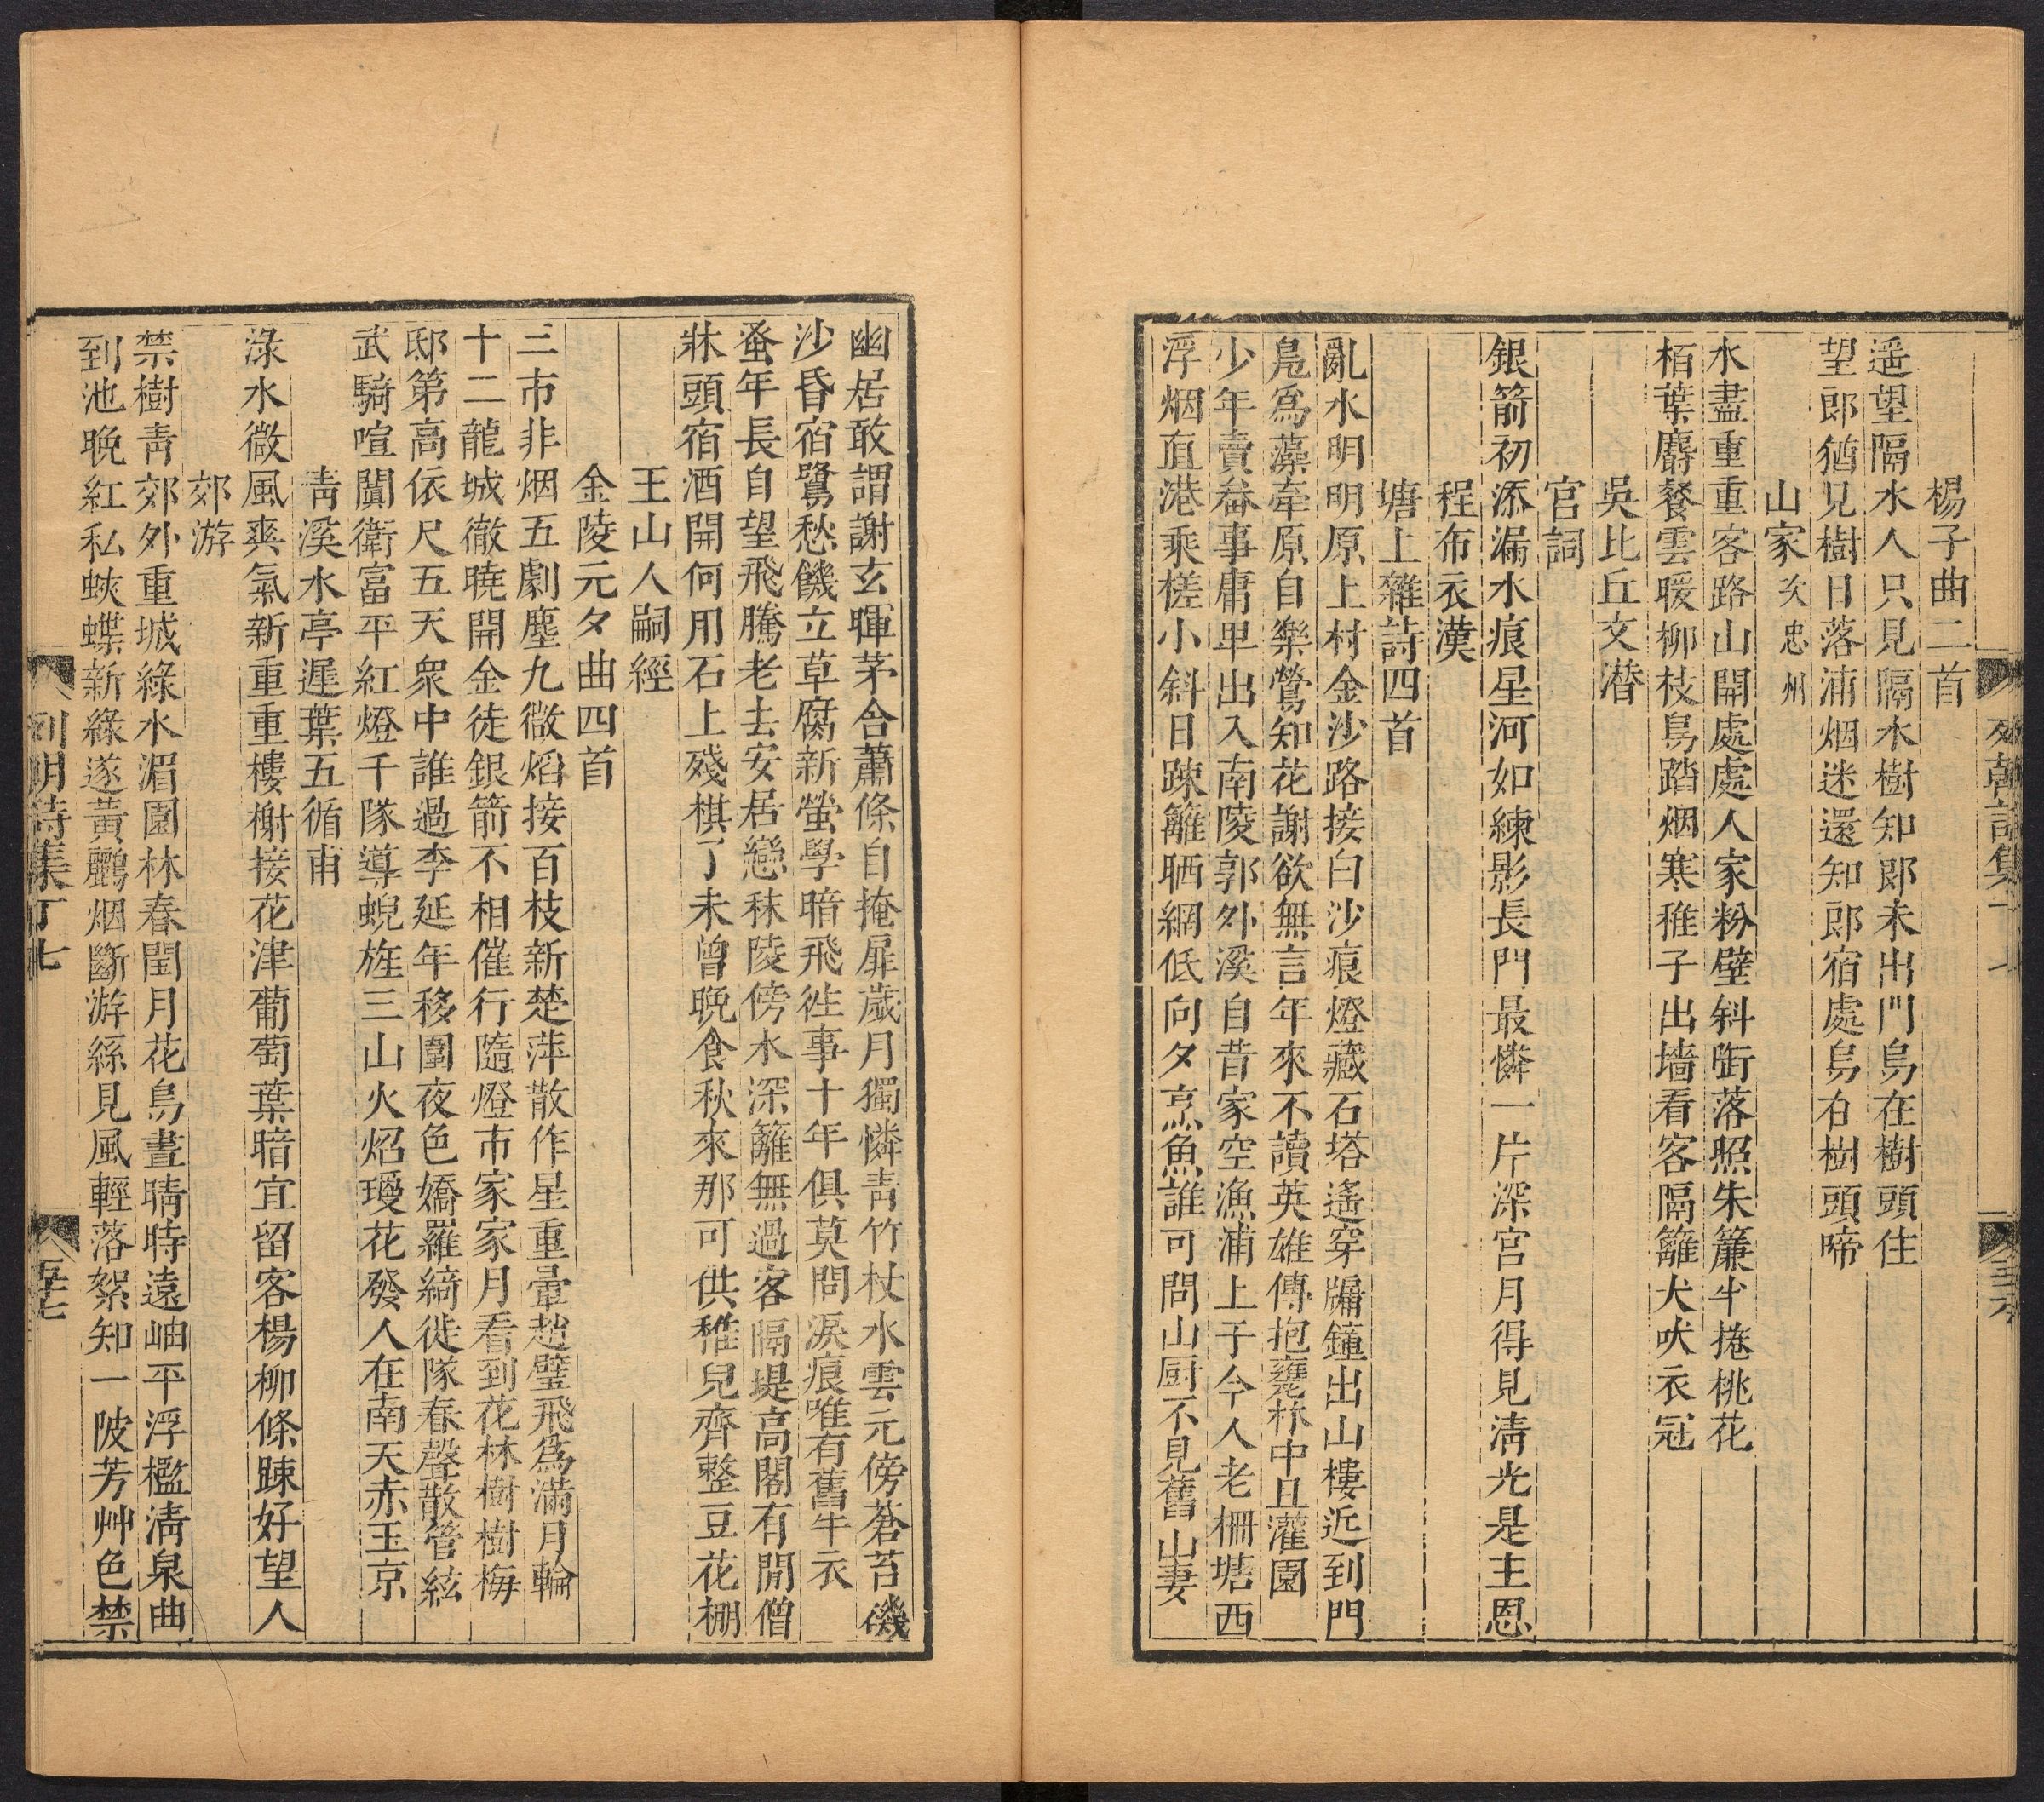 楊子曲二首
遥望隔水人只見隔水樹知郎未出門烏在樹頭住
望郎猶見樹日落浦烟迷還知郎宿處烏右樹頭啼
山家次忠州
水盡重重客路山開處處人家粉壁斜銜落照朱簾半捲桃花
栢葉麝餐雲暖柳枝鳥踏烟寒稚子出墻看客隔籬犬吠衣冠
吳比丘文潜
宫詞
銀箭初添漏水痕星河如練影長門最憐一片深宫月得見清光是主恩
程布衣漢
塘上雜詩四首
亂水明明原上村金沙路接白沙痕燈藏石塔遙穿牖鐘出山樓近到門
鳬爲藻牽原自樂鶯知花謝欲無言年來不讀英雄傳抱甕林中且灌園
少年賣畚事庸甲出入南陵郭外溪自昔家空漁浦上于今人老柵塘西
浮烟直港乘槎小斜日踈籬晒網低向夕烹魚誰可問山厨不見舊山妻
列朝詩集丁七
幽居敢謂謝玄暉茅合蕭條自掩扉歲月獨憐青竹杖水雲元傍蒼苔磯
沙昏宿鷺愁饑立草腐新螢學暗飛徃事十年俱莫問淚痕唯有舊牛衣
蚤年長自望飛騰老去安居戀秣陵傍水深籬無過客隔堤高閣有閒僧
牀頭宿酒開何用石上殘棋了未曾晚食秋來那可供稚兒齊整豆花棚
王山人嗣經
金陵元夕曲四首
三市非烟五劇塵九微焰接百枝新楚萍散作星重暈趙璧飛爲滿月輪
十二龍城徹曉開金徒銀箭不相催行隨燈市家家月看到花林樹樹梅
邸第高依尺五天衆中誰過李延年移圍夜色嬌羅綺徙隊春聲散管絃
武騎喧闐衛富平紅燈千隊導蜺旌三山火炤璦花發人在南天赤玉京
青溪水亭遲葉五循甫
淥水微風爽氣新重重樓榭接花津葡萄葉暗宜留客楊柳條踈好望人
郊游
禁樹青郊外重城綠水湄園林春閏月花鳥晝晴時遠岫平浮檻清泉曲
到池晚紅私蛺蝶新綠遂黃鸝烟斷游絲見風輕落絮知一陂芳艸色禁
列朝詩集丁七